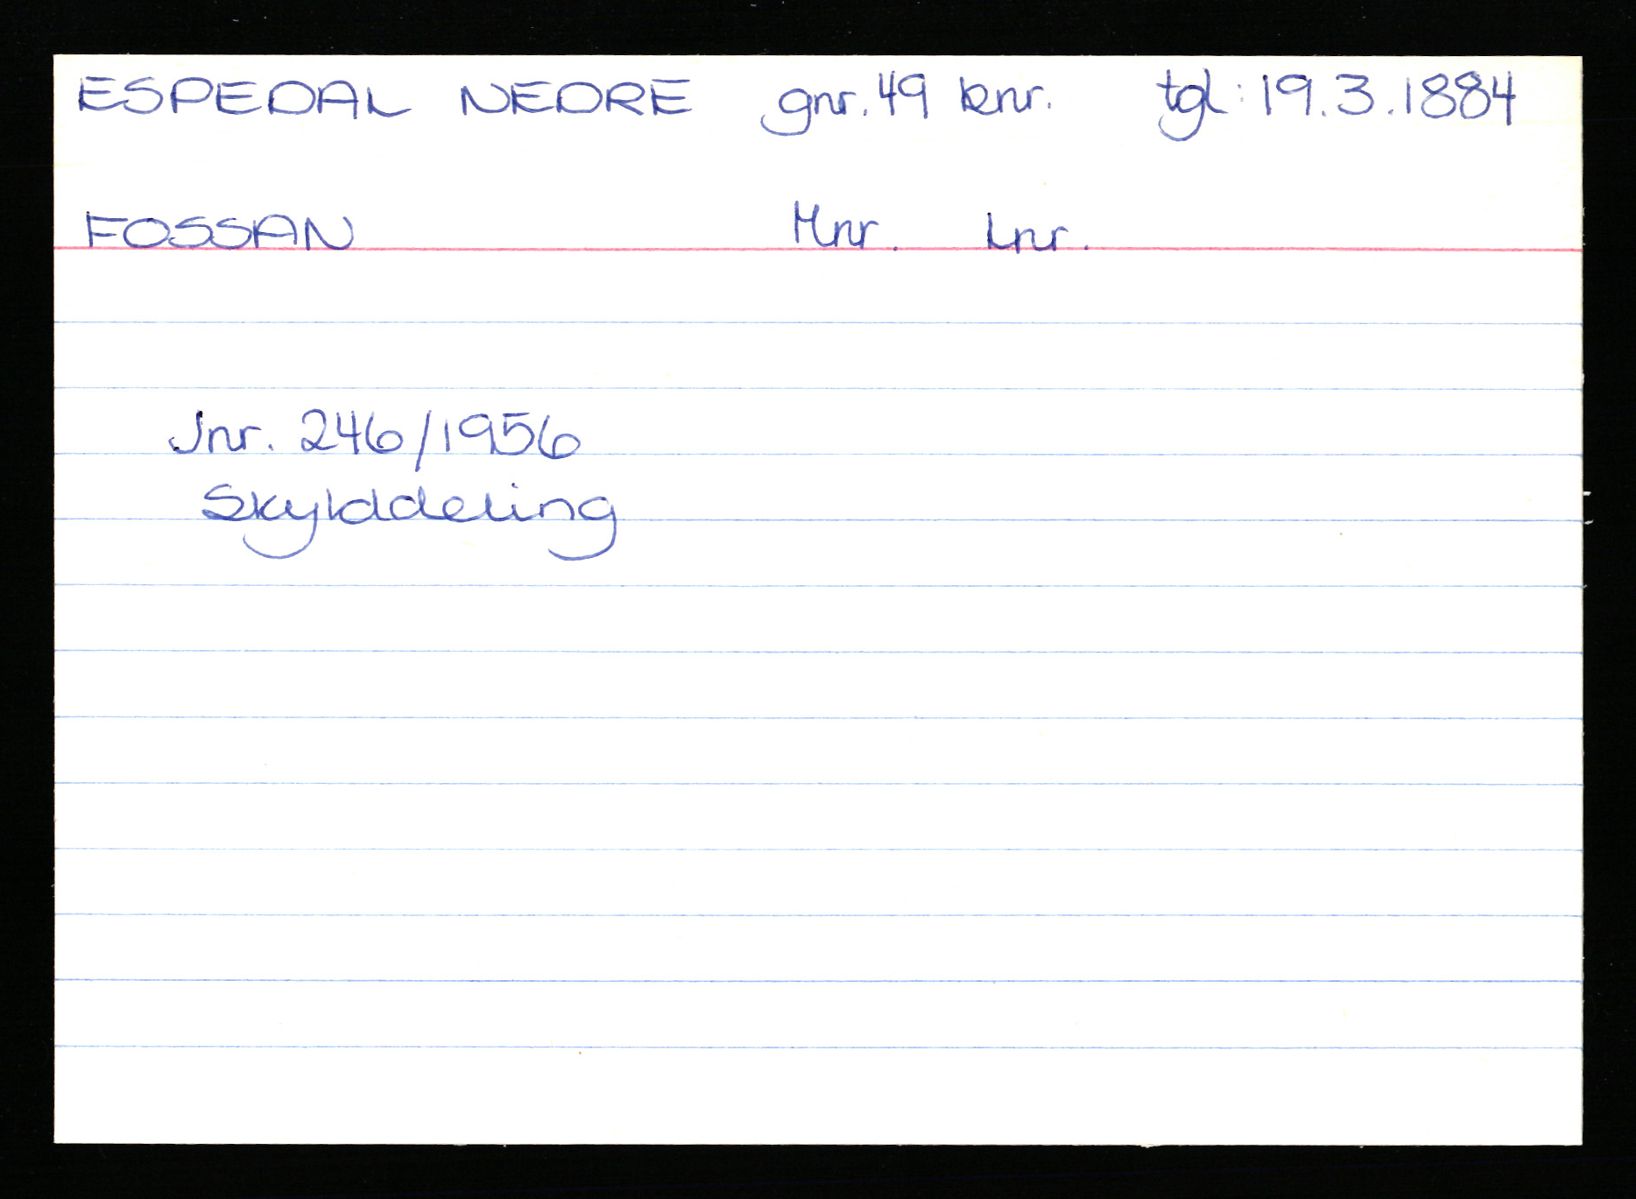 ESPEDAL NEDRE gnr. 49 bnr. tgl: 19.3.1884
FOSSAN Mnr. Lnr.
Jnr. 246/1956
Skylddeling